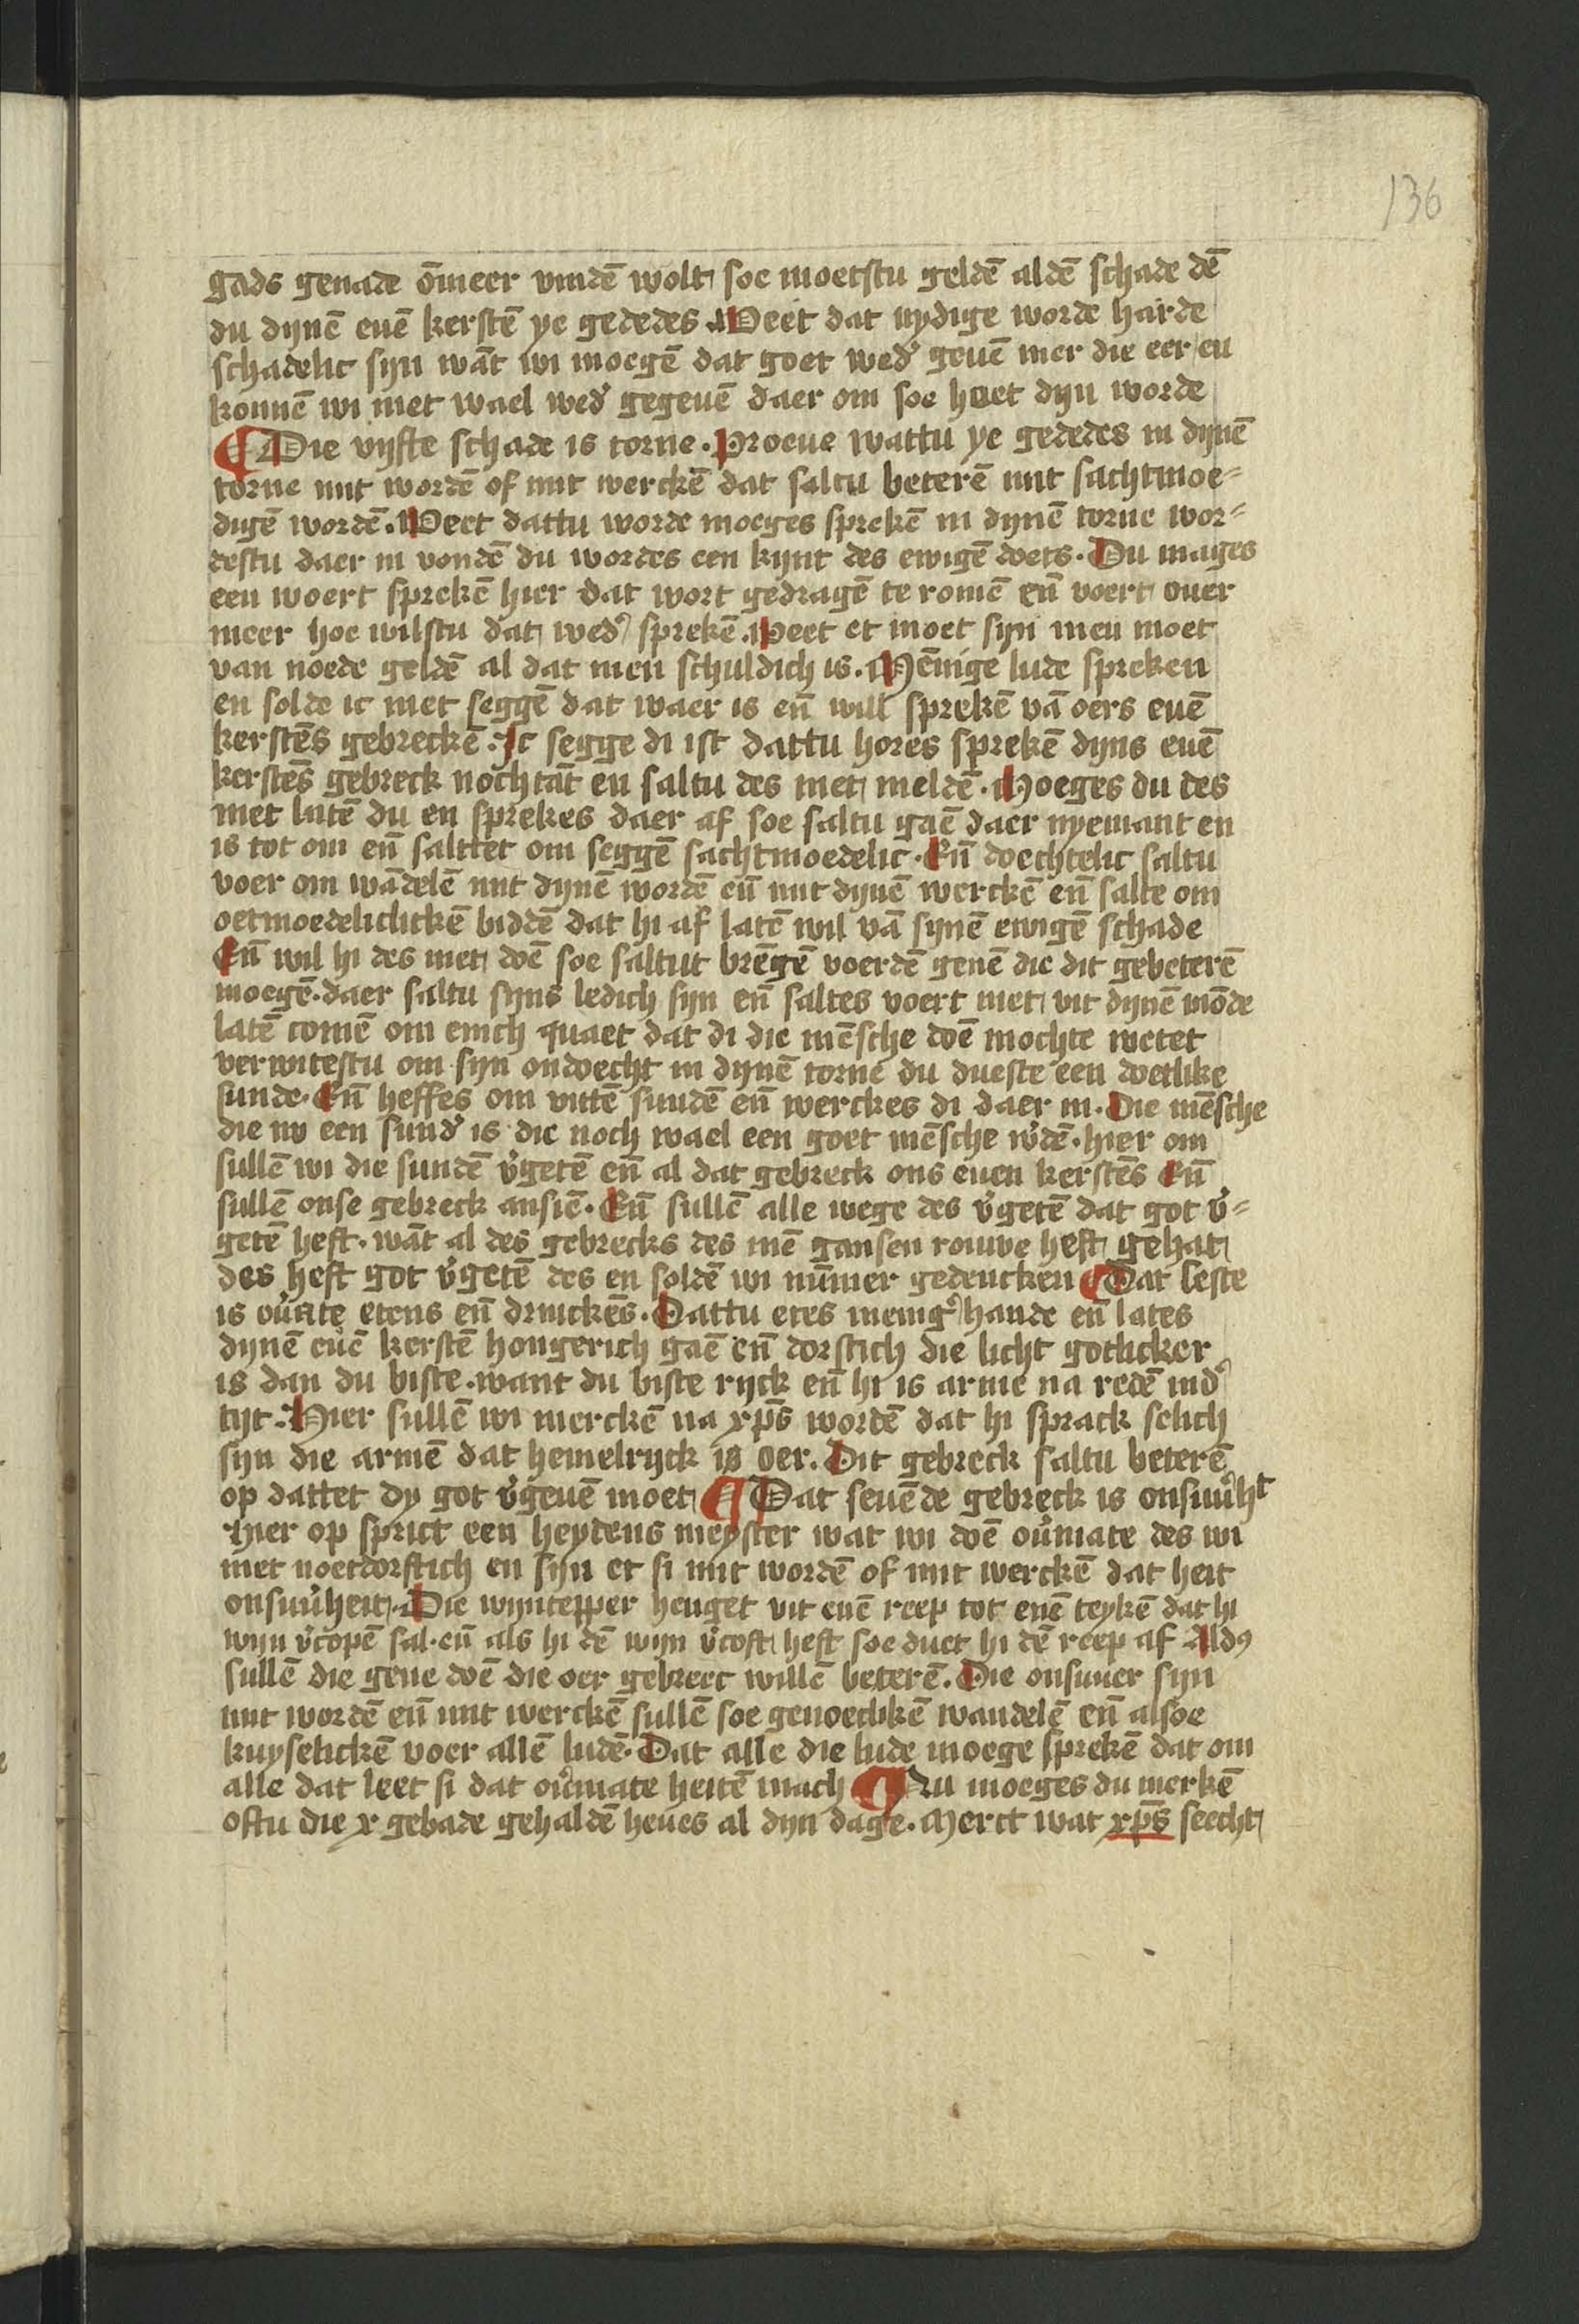 136
gads genade om̄eer vindē wolt soe moetstu geldē aldē schade dē
du dynē euē kerstē ye gededes. Weet dat nydige worde harde
schadelic syn wāt wi moegē dat goet wed' geuē mer die eer en
konnē wi niet wael wed' gegeuē daer om soe huet dyn worde
¶ Die vyfte schade is torne. Proeue wattu ye gededes in dynē
torne mit wordē of mit werckē dat saltu beterē mit sachtmoe=
digē wordē. Weet dattu worde moeges sprekē in dynē torne wor=
destu daer in vondē du wordes een kynt des ewigē doets. Du mages
een woert sprekē hier dat wort gedragē te romē en̄ voert ouer
meer hoe wilstu dat wed' sprekē. Weet et moet syn men moet
van noede geldē al dat men schuldich is. Mēnige lude spreken
en solde ic niet seggē dat waer is en̄ will sprekē vā oers euē
kerstēs gebreckē. Ic segge di ist dattu hores sprekē dyns euē
kerstēs gebreck nochtāt en saltu des niet meldē. Moeges du des
niet latē du en sprekes daer af soe saltu gaē daer nyemant en
is tot om en̄ salttet om seggē sachtmoedelic. En̄ doechtelic saltu
voer om wādelē mit dynē wordē en̄ mit dynē werckē en̄ salte om
oetmoedeliclickē biddē dat hi af latē wil vā synē ewigē schade
En̄ wil hi des niet doē soe saltut brēgē voerdē genē die dit gebeterē
moegē. daer saltu syns ledich syn en̄ saltes voert niet vit dynē mōde
latē comē om enich quaet dat di die mēsche doē mochte wetet
verwitestu om syn ondoecht in dynē torne du dueste een doetlike
sunde. En̄ heffes om vittē sundē en̄ werckes di daer in. Die mēsche
die nv een sund' is die noch wael een goet mēsche w'dē. hier om
sullē wi die sundē v'getē en̄ al dat gebreck ons euen kerstēs En̄
sullē onse gebreck ansiē. En̄ sullē alle wege des v'getē dat got v'=
getē heft. wāt al des gebrecks des mē gansen rouwe heft gehat
des heft got v'getē des en soldē wi nūmer gedencken ¶ Dat leste
is ou'ate etens en̄ drinckēs. Dattu etes menig'hande en̄ lates
dynē euē kerstē hongerich gaē en̄ dorstich die licht gotlicker
is dan du biste. want du biste ryck en̄ hi is arme na redē ind'
tyt. Hier sullē wi merckē na xp̄s wordē dat hi sprack selich
syn die armē dat hemelryck is oer. Dit gebreck saltu beterē
op dattet dy got v'geuē moet ¶ Dat seuēde gebreck is onsuu'ht
Hier op sprict een heydens meyster wat wi doē ou'mate des wi
niet noetdorftich en syn et si mit wordē of mit werckē dat heit
onsuu'heit. Die wyntepper henget vit enē reep tot enē teykē dat hi
wyn v'copē sal. en̄ als hi dē wyn v'coft heft soe duet hi dē reep af Ald9
sullē die gene doē die oer gebrect willē beterē. Die onsuuer syn
mit wordē en̄ mit werckē sullē soe genoechkē wandelē en̄ alsoe
kuyselickē voer allē ludē. Dat alle die lude moege sprekē dat om
alle dat leet si dat ou'mate heitē mach ¶ Nu moeges du merkē
oftu die x gebade gehaldē heues al dyn dage. Merct wat xp̄s seecht